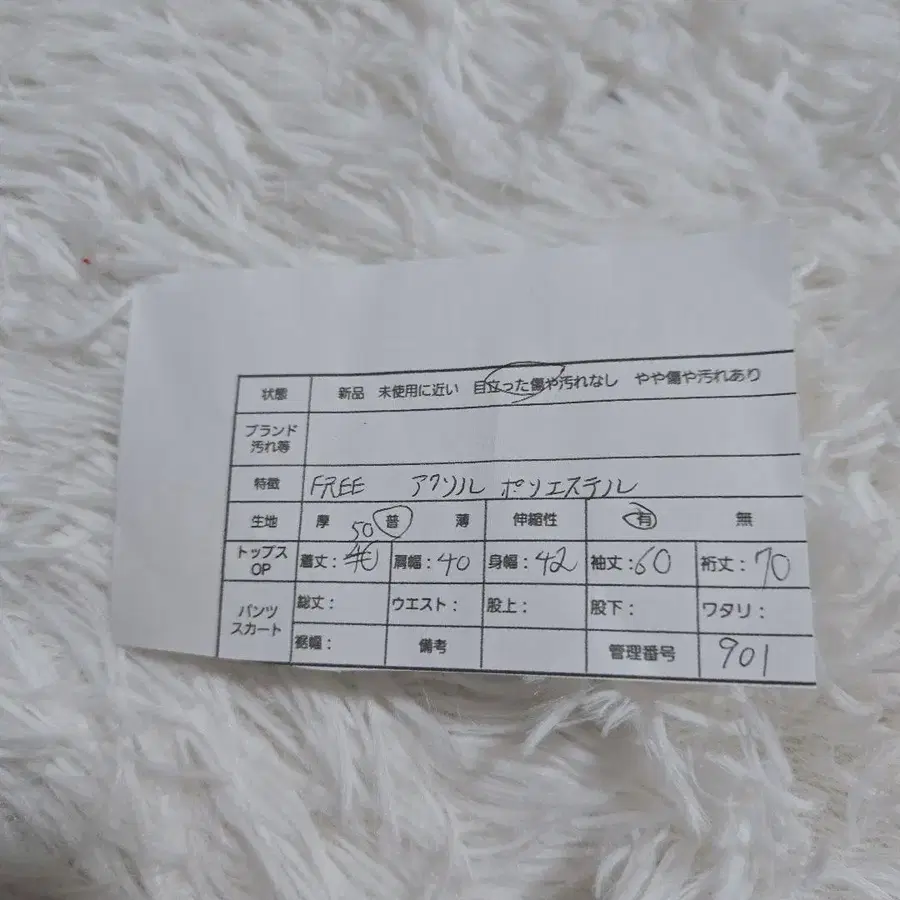 状態 新品 未使用に近い 目立った傷や汚れなし やや傷や汚れあり
ブランド
汚れ等
特徴 FREE アクリル ポリエステル
生地 厚 普 薄 伸縮性 有 無
50
トップス
OP 着丈: 40 肩幅: 40 身幅: 42 袖丈: 60 裄丈: 70
パンツ
スカート 総丈: ウエスト: 股上: 股下: ワタリ:
裾幅: 備考 管理番号 901